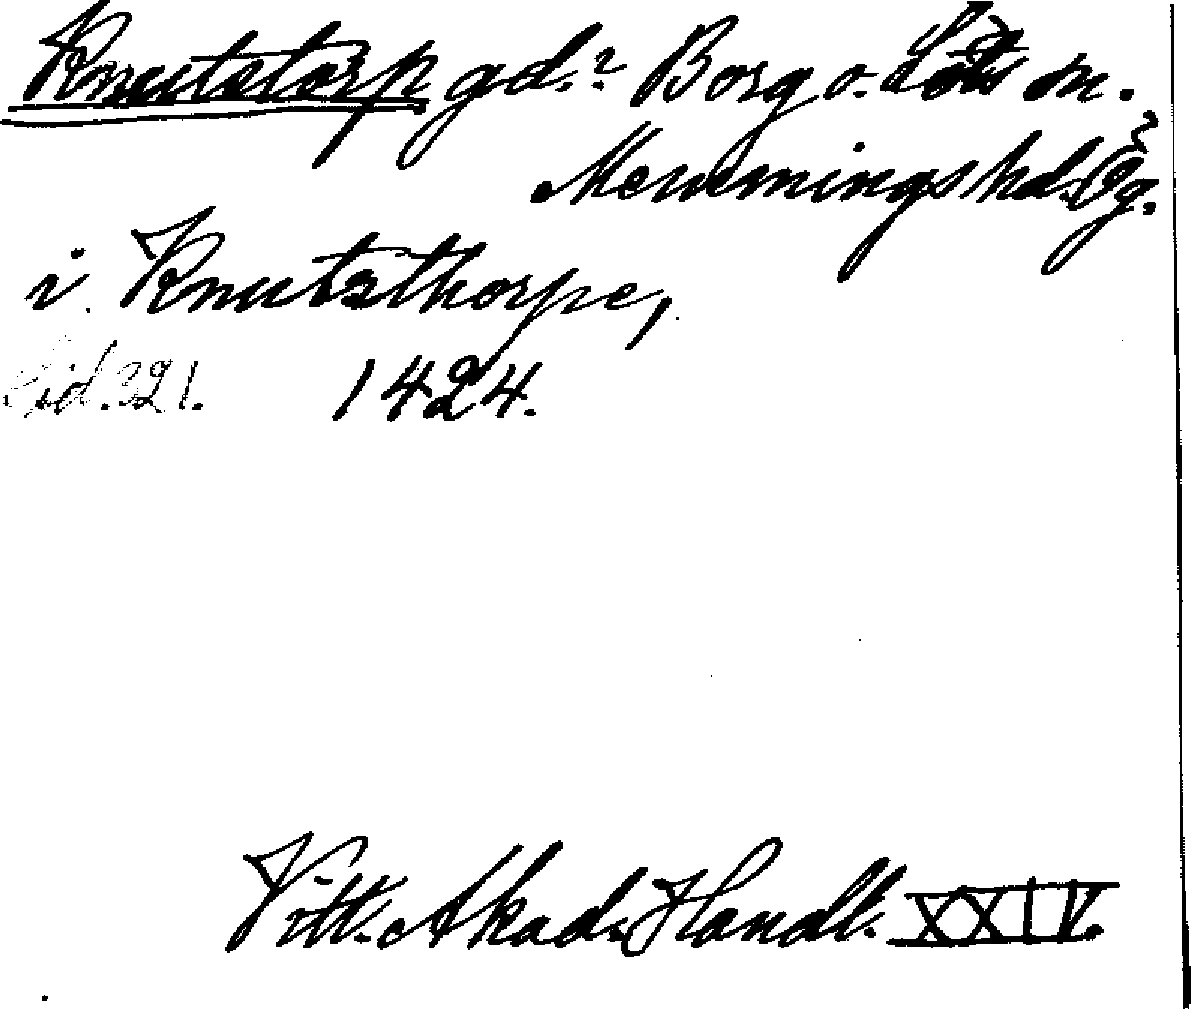 Knutstorp gd.? Borg o. Löts sn.
Memmingshd. Ög.
i Knutzthorpe,
Sid. 321. 1424.
Vitt. Akad. Handl. XXIV.